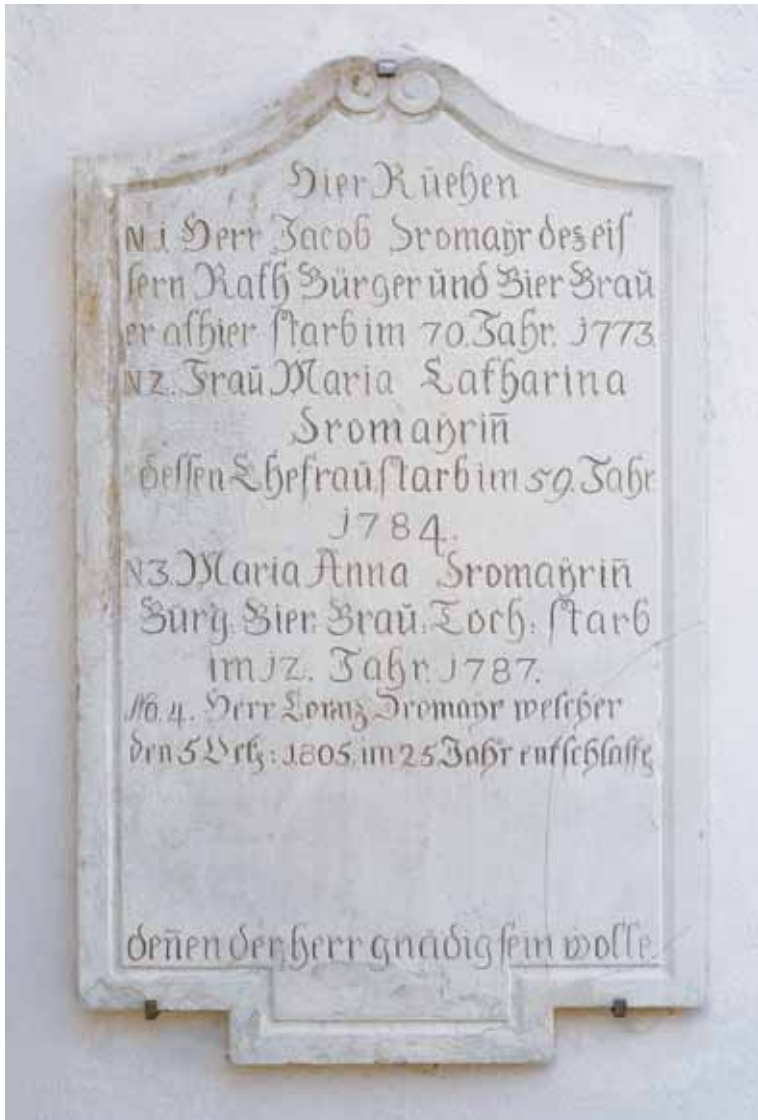 Hier Rŭehen
N 1 Herr Jacob Sromaÿr des eiſ
ſern Rath Bürger ŭnd Bier Braŭ
er alhier ſtarb im 70. Jahr. 1773
N 2. Fraŭ Maria Catharina
Sromaÿrin̄
deſſen Ehefraŭ ſtarb im 59. Jahr
1784.
N3. Maria Anna Sromaÿrin̄
Bürg: Bier: Braŭ: Toch: ſtarb
im 12. Jahr. 1787.
No. 4. Herr Lorenz Sromaÿr welcher
den 5 : 1805. im 25 Jahr entſchlaffē
den̄en der herr gnädig ſein wolle